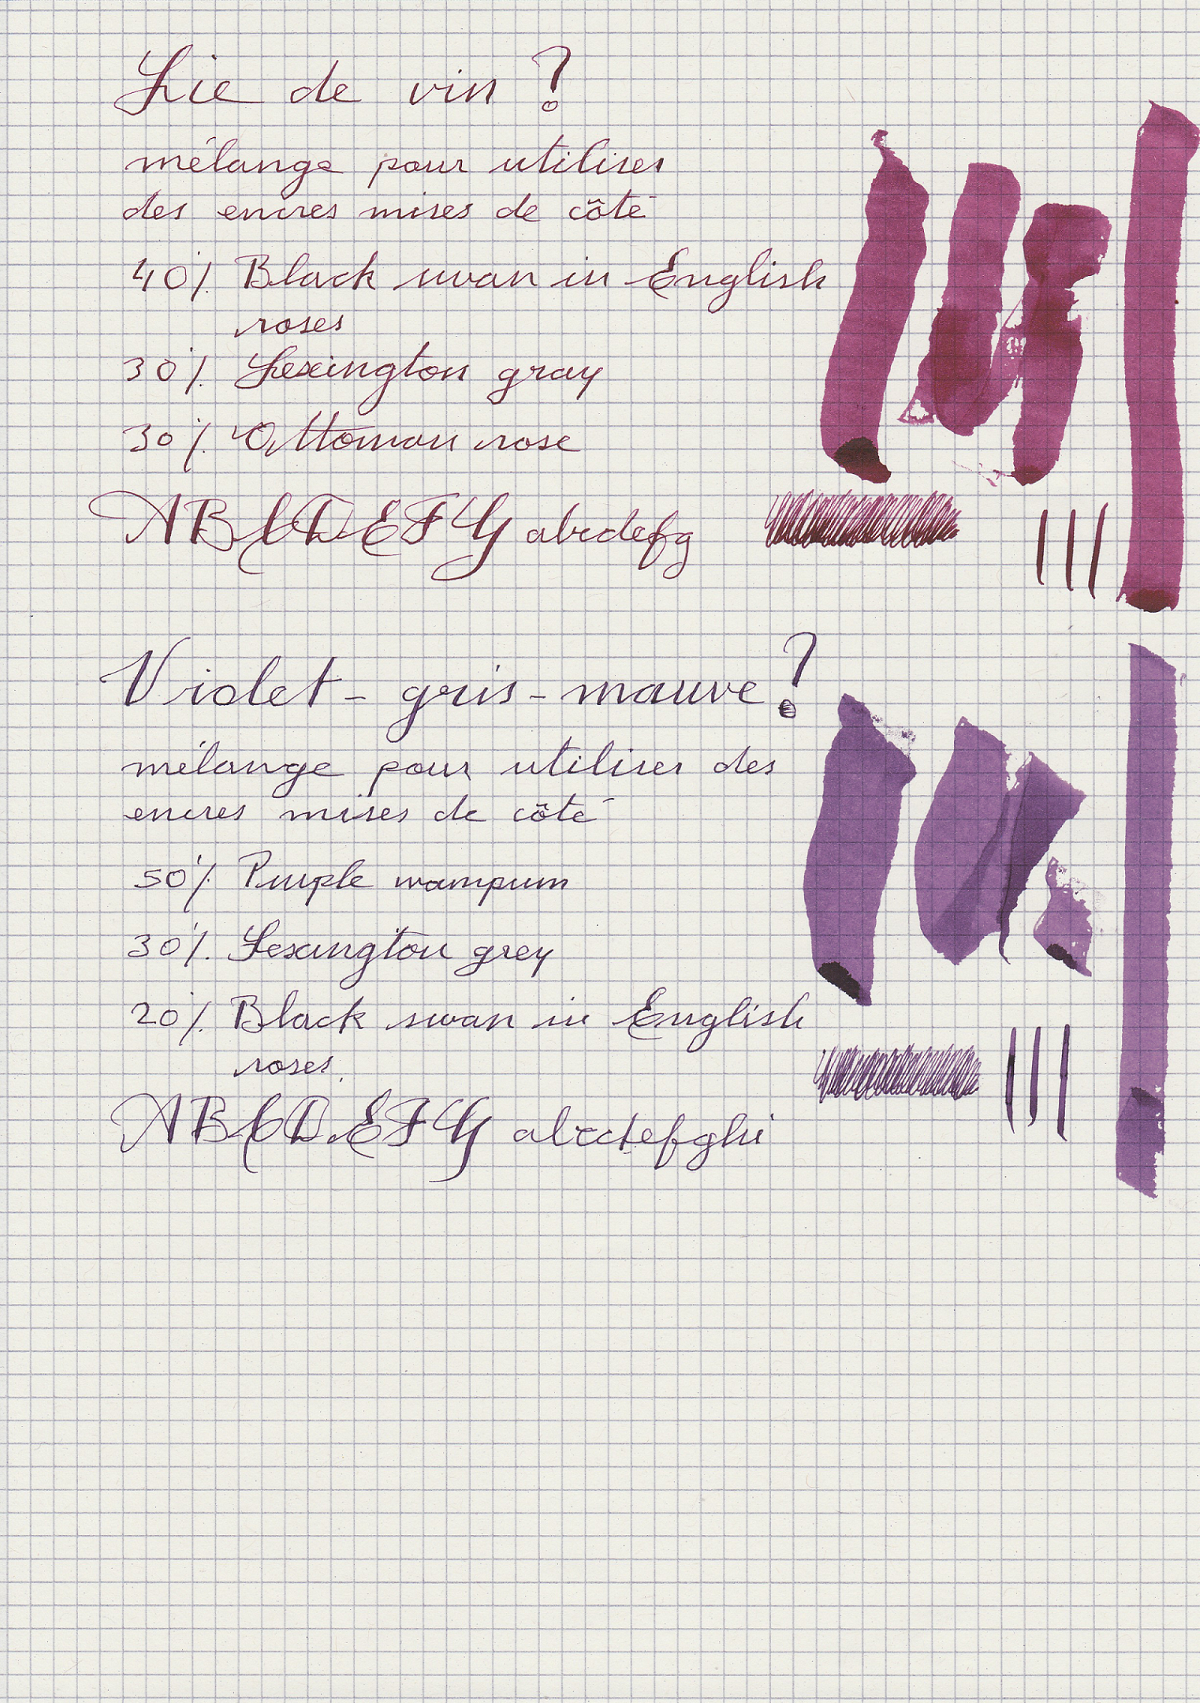 Lie de vin ?
mélange pour utiliser
des encres mises de côté
40% Black swan in English
roses
30% Lexington gray
30% Ottoman rose
ABCDEFG abcdefg
Violet-gris-mauve ?
mélange pour utiliser des
encres mises de côté
50% Purple wampum
30% Lexington grey
20% Black swan in English
roses.
ABCDEFG abcdefghi